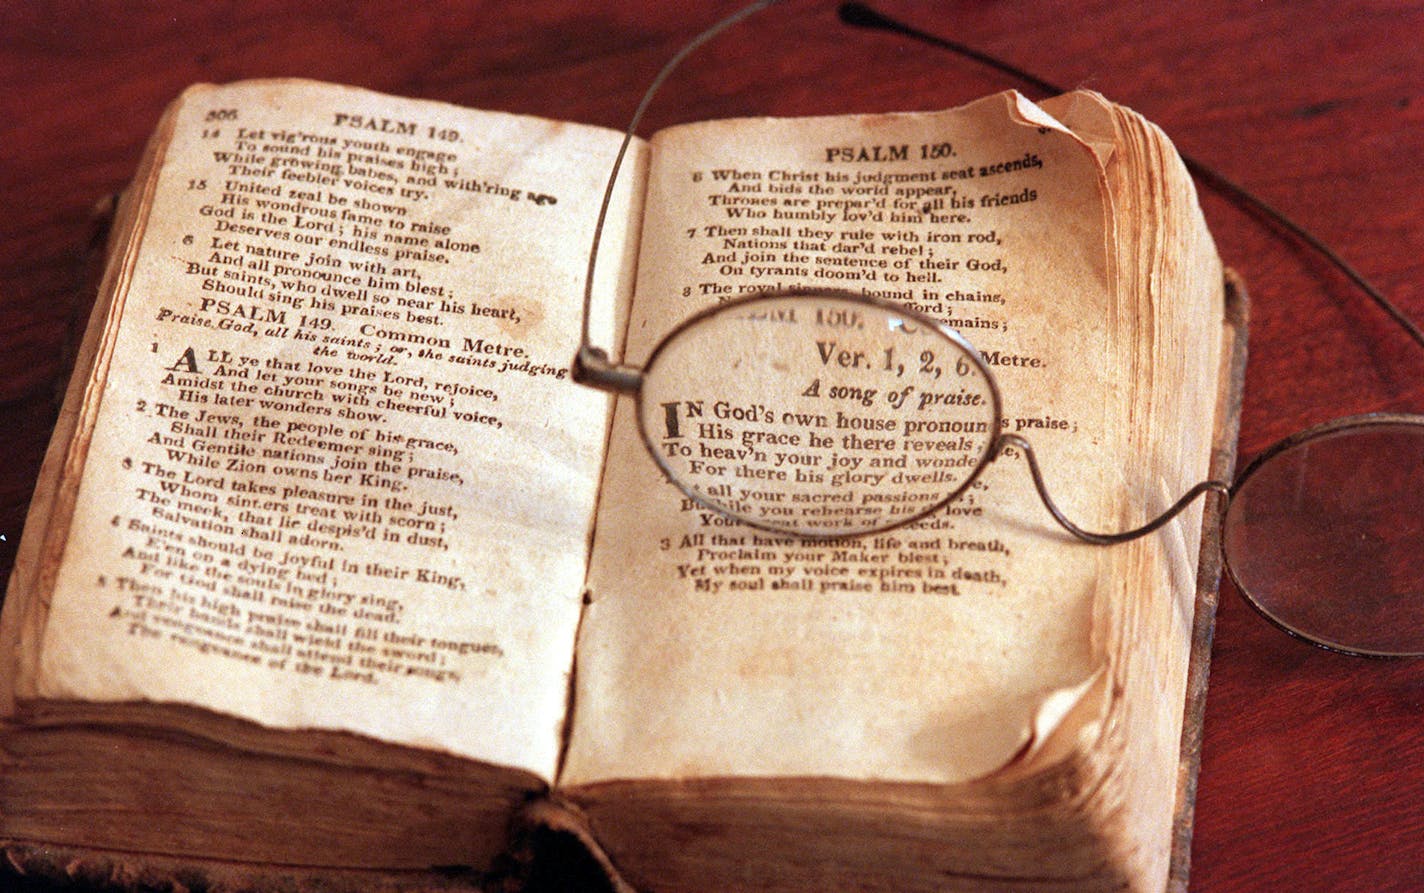 306
PSALM 149.
14 Let vig'rous youth engage
To sound his praises high;
While growing babes, and with'ring age
Their feebler voices try.
15 United zeal be shown
His wondrous fame to raise
God is the Lord; his name alone
Deserves our endless praise.
6 Let nature join with art,
And all pronounce him blest;
But saints, who dwell so near his heart,
Should sing his praises best.
PSALM 149. Common Metre.
Praise God, all his saints; or, the saints judging
the world.
1 ALL ye that love the Lord, rejoice,
And let your songs be new;
Amidst the church with cheerful voice,
His later wonders show.
2 The Jews, the people of his grace,
Shall their Redeemer sing;
And Gentile nations join the praise,
While Zion owns her King.
3 The Lord takes pleasure in the just,
Whom sinners treat with scorn;
The meek, that lie despis'd in dust,
Salvation shall adorn.
4 Saints should be joyful in their King,
E'en on a dying bed;
And like the souls in glory sing,
For God shall raise the dead.
5 Then his high praise shall fill their tongues,
Their hands shall wield the sword;
And vengeance shall attend their songs,
The vengeance of the Lord.
PSALM 150.
6 When Christ his judgment seat ascends,
And bids the world appear,
Thrones are prepar'd for all his friends
Who humbly lov'd him here.
7 Then shall they rule with iron rod,
Nations that dar'd rebel;
And join the sentence of their God,
On tyrants doom'd to hell.
8 The royal sinners bound in chains,
150.
Ver. 1, 2, 6. Metre.
A song of praise.
IN God's own house pronounce his praise;
His grace he there reveals;
To heav'n your joy and wonder
For there his glory dwells.
all your sacred passions
while you rehearse his love
work of
3 All that have motion, life and breath,
Proclaim your Maker blest;
Yet when my voice expires in death,
My soul shall praise him best.